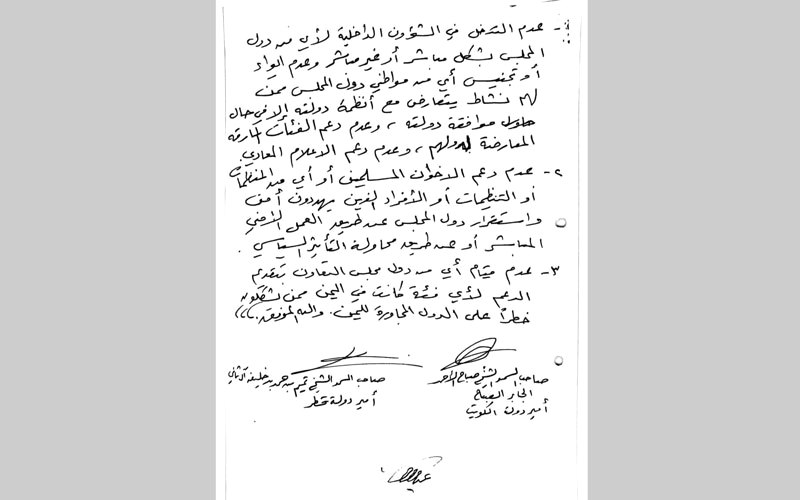 ١- عدم التدخل في الشؤون الداخلية لأي من دول
المجلس بشكل مباشر أو غير مباشر وعدم إيواء
أو تجنيس أي من مواطني دول المجلس ممن
لهم نشاط يتعارض مع أنظمة دولته إلا في حال
موافقة دولته ، وعدم دعم الفئات المارقه
المعارضة لدولهم ، وعدم دعم الاعلام المعادي.
٢- عدم دعم الاخوان المسلمين أو أي من المنظمات
أو التنظيمات أو الأفراد الذين يهددون أمن
واستقرار دول المجلس عن طريق العمل الأمني
المباشر أو عن طريق محاولة التأثير السياسي.
٣- عدم قيام أي من دول مجلس التعاون بتقديم
الدعم لأي فئة كانت في اليمن ممن يشكلون
خطراً على الدول المجاورة لليمن. والله الموفق،،،
صاحب السمو الشيخ صباح الأحمد
الجابر الصباح
أمير دولة الكويت
صاحب السمو الشيخ تميم بن حمد بن خليفه آل ثاني
أمير دولة قطر